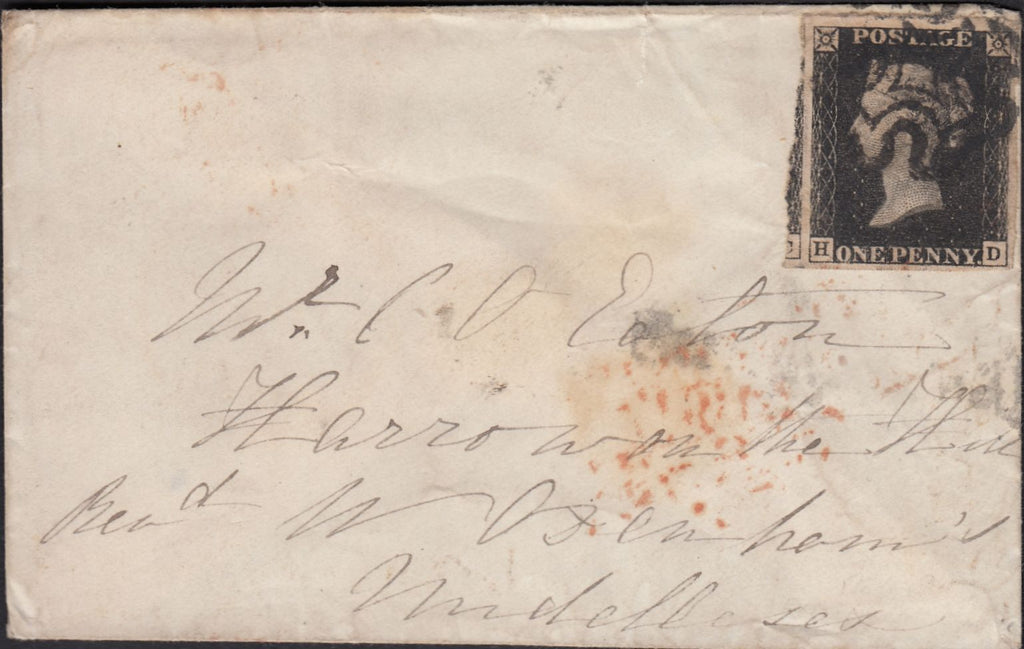 POSTAGE
H ONE PENNY. D
Mr. C O Eaton
Harrow on the Hill
Revd W Oxenham's
Middlesex